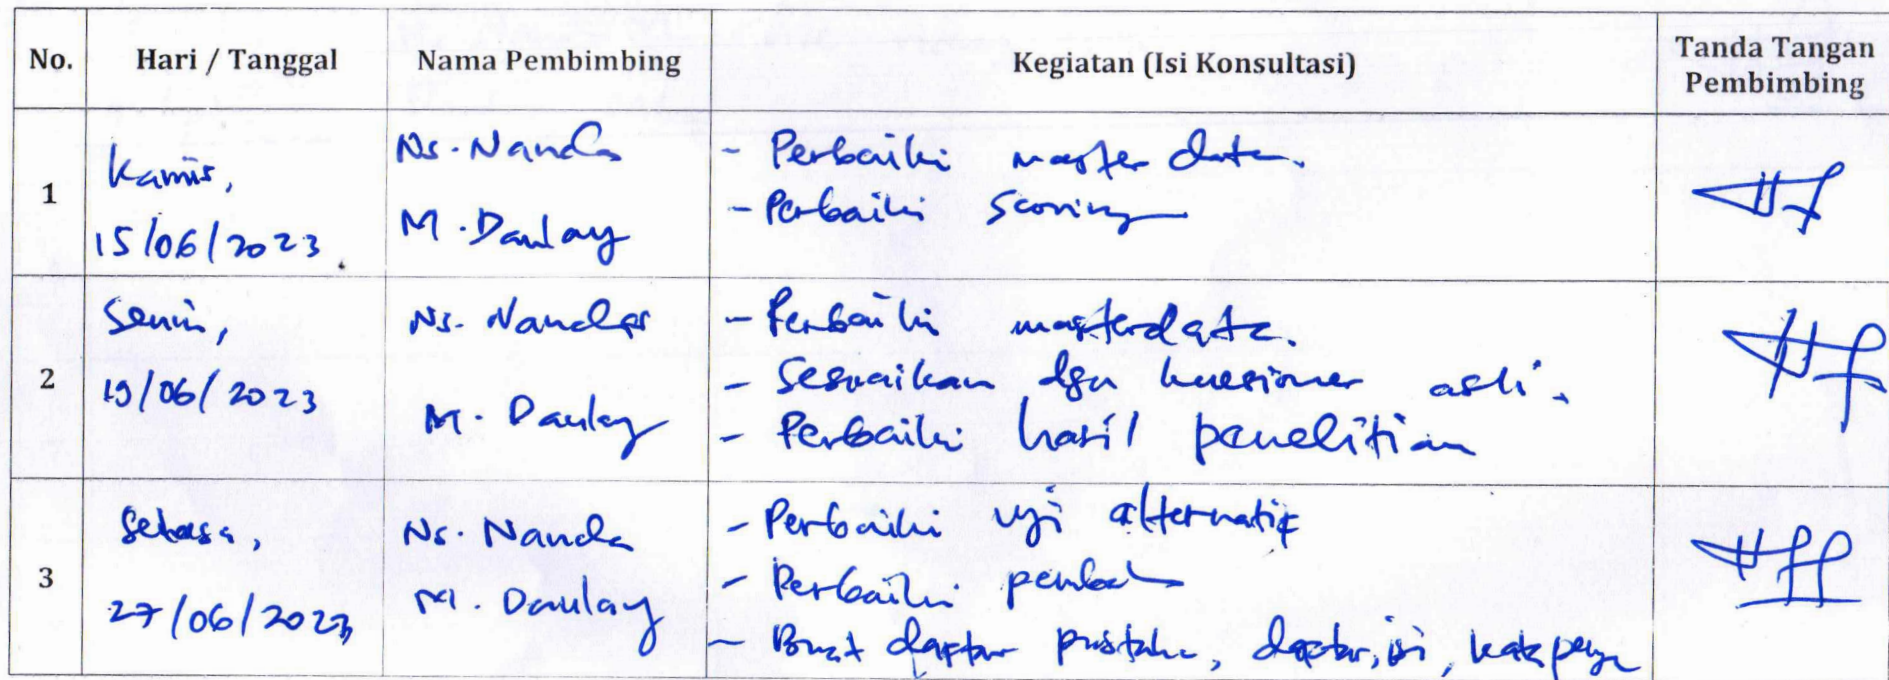 No. Hari / Tanggal Nama Pembimbing Kegiatan (Isi Konsultasi) Tanda Tangan Pembimbing
1
Kamis,
15/06/2023
Ns. Nanda
M. Daulay
- Perbaiki master data.
- Perbaiki Scoring
2
Senin,
19/06/2023
Ns. Nanda
M. Daulay
- Perbaiki masterdata.
- Sesuaikan dgn kuesioner asli.
- Perbaiki hasil penelitian
3
Selasa,
27/06/2023
Ns. Nanda
M. Daulay
- Perbaiki uji alternatif
- Perbaiki
- Buat daftar pustaka, daftar isi, kata